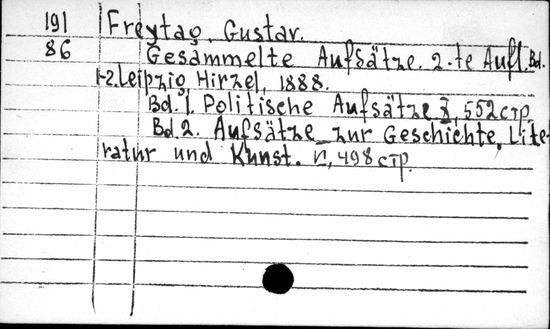 191 Freytag, Gustav.
86 Gesammelte Aufsätze. 2-te Aufl. Bd.
1-2. Leipzig, Hirzel, 1888.
Bd. 1. Politische Aufsätze X, 552 стр.
Bd. 2. Aufsätze zur Geschichte, Lite-
ratur und Kunst. VI, 498 стр.